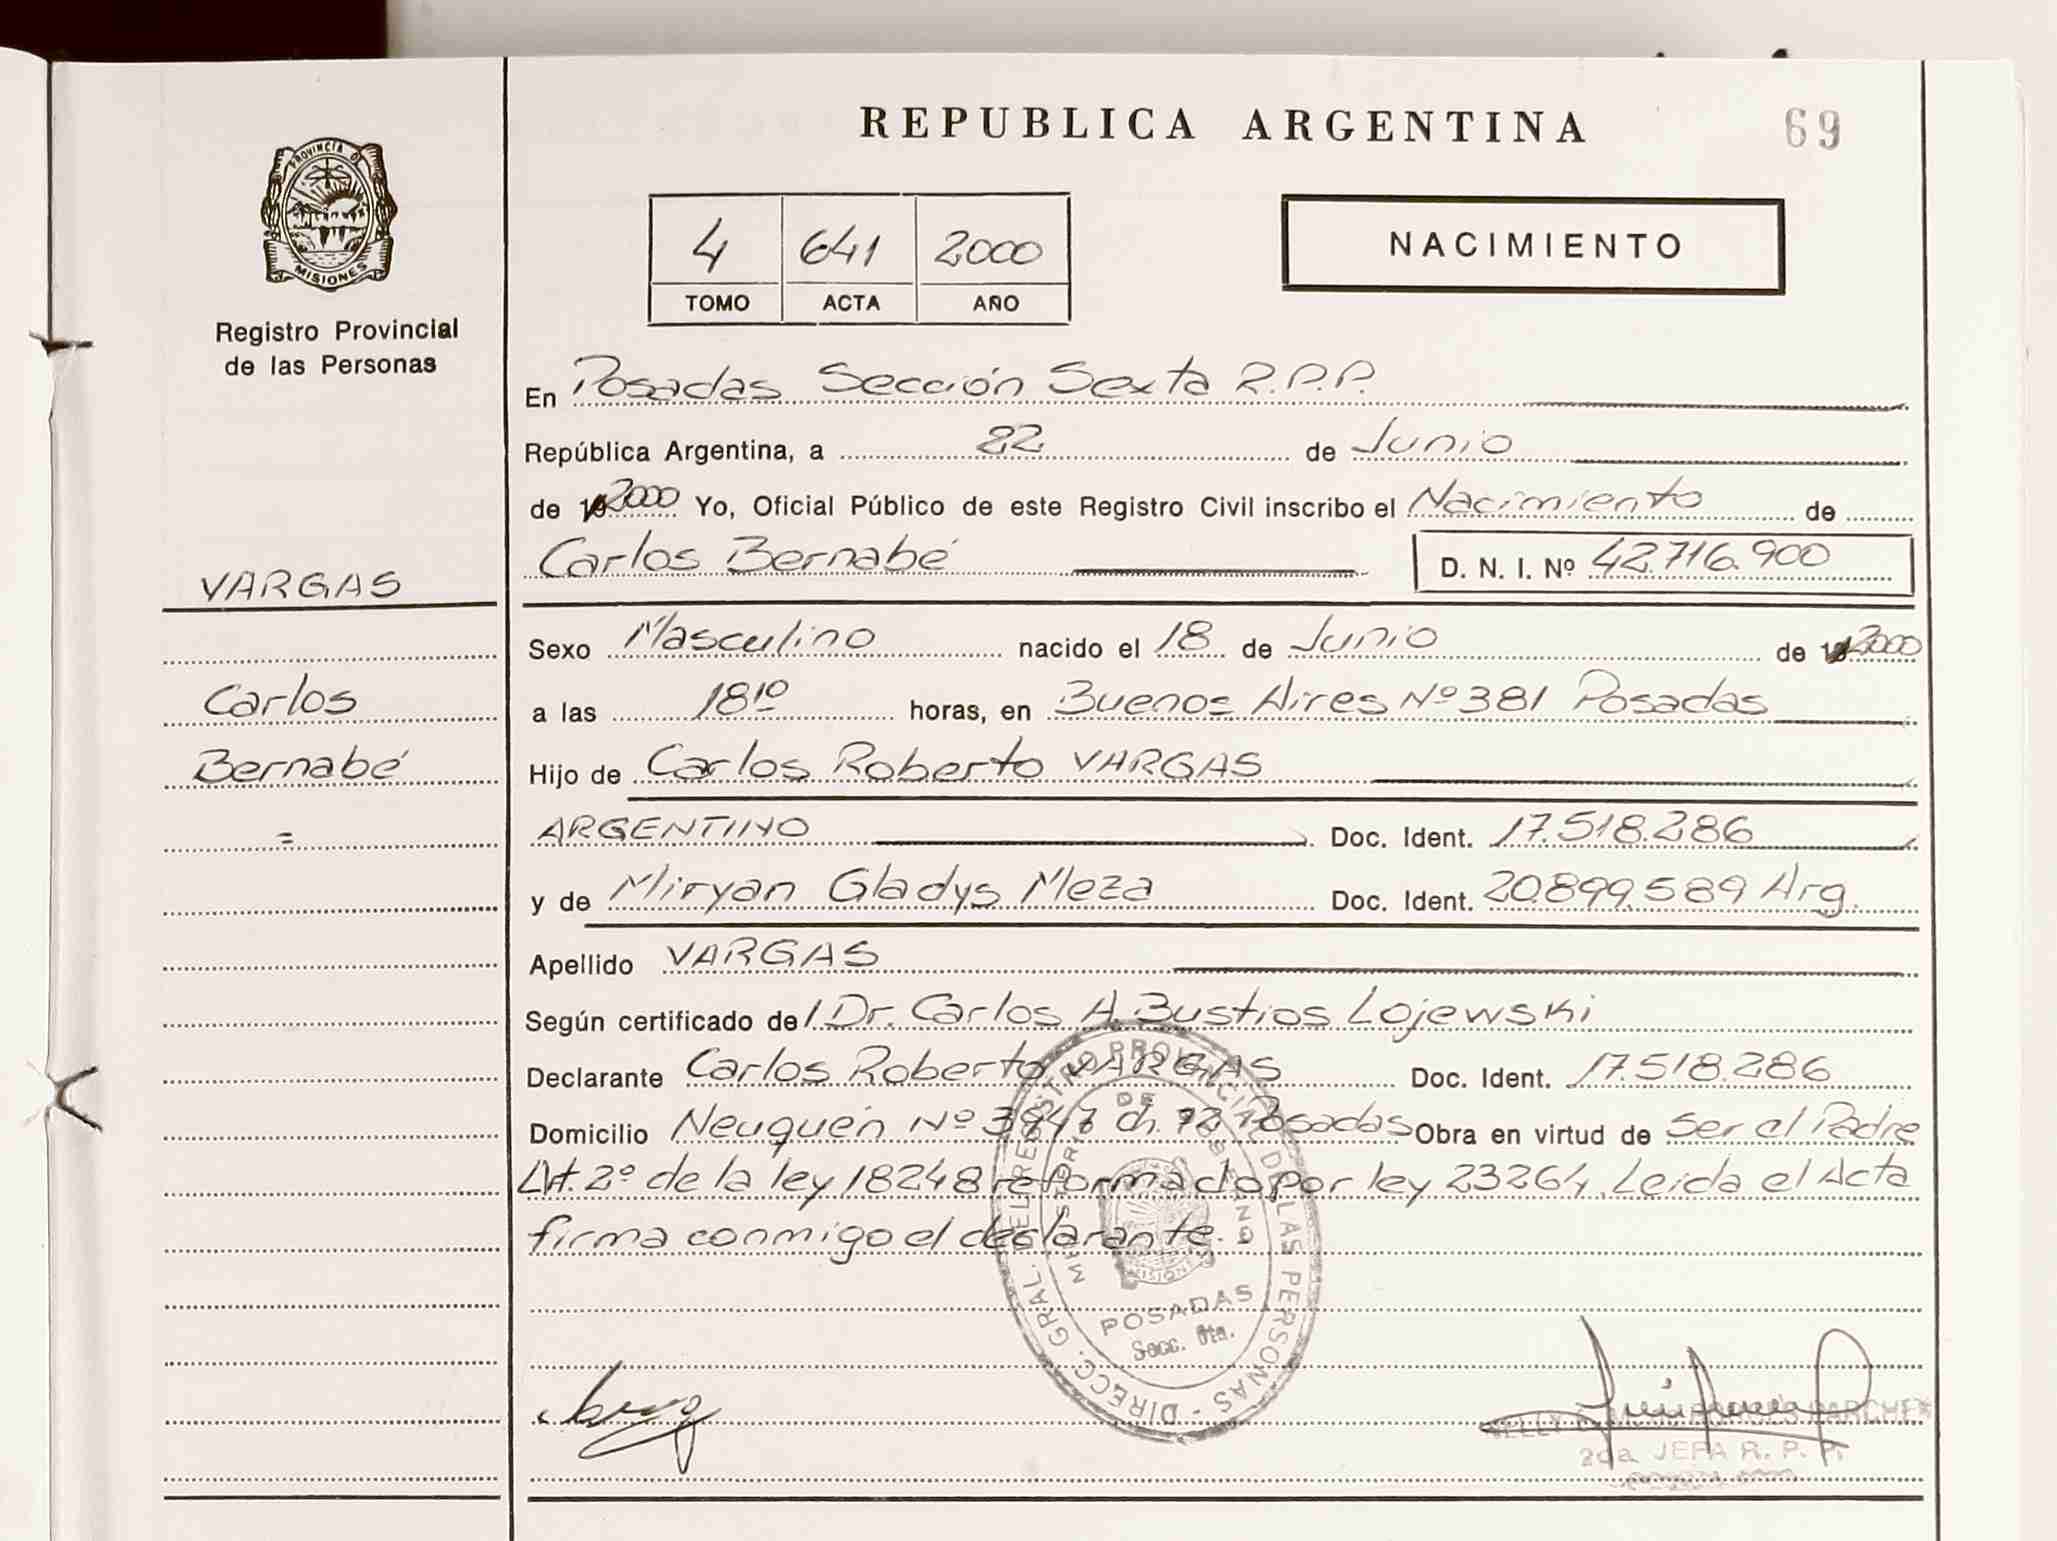 REPUBLICA ARGENTINA
69
PROVINCIA DE
MISIONES
Registro Provincial
de las Personas
4 641 2000
TOMO ACTA AÑO
NACIMIENTO
En Posadas Sección Sexta R.P.P.
República Argentina, a 22 de Junio
de 2000 Yo, Oficial Público de este Registro Civil inscribo el Nacimiento de
Carlos Bernabé D. N. I. Nº 42.716.900
VARGAS
Carlos
Bernabé
=
Sexo Masculino nacido el 18 de Junio de 2000
a las 18¹⁰ horas, en Buenos Aires Nº 381 Posadas
Hijo de Carlos Roberto VARGAS
ARGENTINO Doc. Ident. 17.518.286
y de Miryan Gladys Meza Doc. Ident. 20.899.589 Arg.
Apellido VARGAS
Según certificado del Dr. Carlos A. Bustios Lojewski
Declarante Carlos Roberto VARGAS Doc. Ident. 17.518.286
Domicilio Neuquén Nº 3847 ch. 72 Posadas Obra en virtud de Ser el Padre
Art. 2º de la ley 18248 reformado por ley 23264. Leida el Acta
firma conmigo el declarante.
DIRECC. GRAL. DEL REGISTRO PROVINCIAL DE LAS PERSONAS
MINISTERIO DE GOBIERNO
MISIONES
POSADAS
Secc. 6ta.
NELLY
2da JEFA R. P. P.